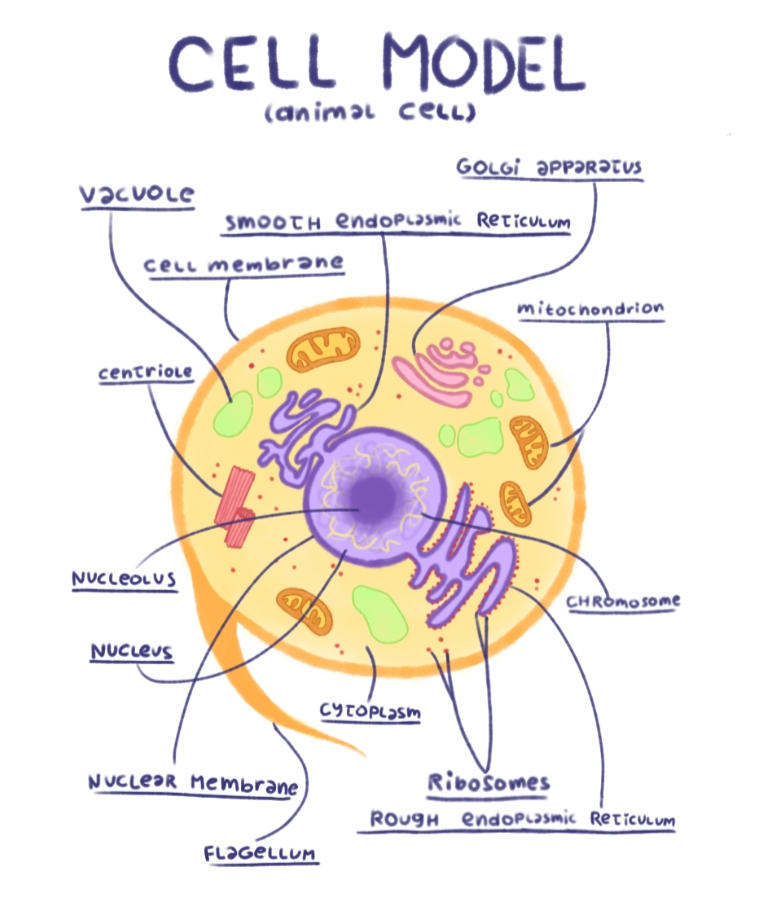 CELL MODEL
(animal cell)
GOLGI APPARATUS
VACUOLE
SMOOTH endoplasmic RETICULUM
cell membrane
mitochondrion
centriole
NUCLEOLUS
CHROmosome
NUCLEUS
CYTOPLASM
NUCLEAR Membrane
RiboSomes
ROUGH endoplasmic RETICULUM
FLAGELLUM